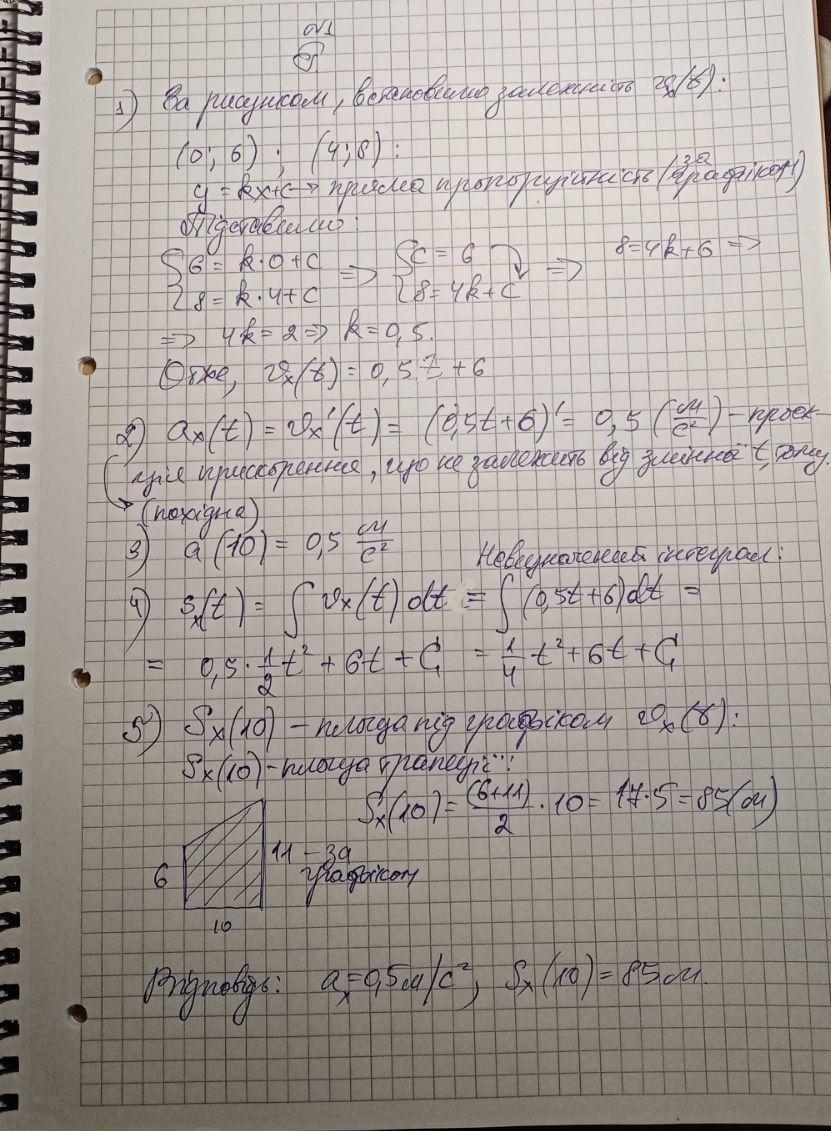 №1
1) За рисунком, встановимо залежність υx(t):
(0; 6) ; (4; 8) :
y = kx+c → пряма пропорційність (за графіком)
Підставимо:
{6 = k·0+c => {c = 6 => 8=4k+6 =>
{8 = k·4+c {8=4k+c
=> 4k=2 => k=0,5.
Отже, υx(t) = 0,5t+6
2) ax(t) = υx'(t) = (0,5t+6)' = 0,5 (м/с²) – проек-
ція прискорення, що не залежить від змінної t, тому
(похідна)
3) a(10) = 0,5 м/с²
Невизначений інтеграл:
4) Sx(t) = ∫ υx(t) dt = ∫ (0,5t+6)dt =
= 0,5 · 1/2 t² + 6t + C₁ = 1/4 t² + 6t + C₁
5) Sx(10) – площа під графіком υx(t):
Sx(10) – площа трапеції:
Sx(10) = (6+11)/2 · 10 = 17·5 = 85(м)
6
11 – за
графіком
10
Відповідь: ax=0,5м/с²; Sx(10) = 85м.